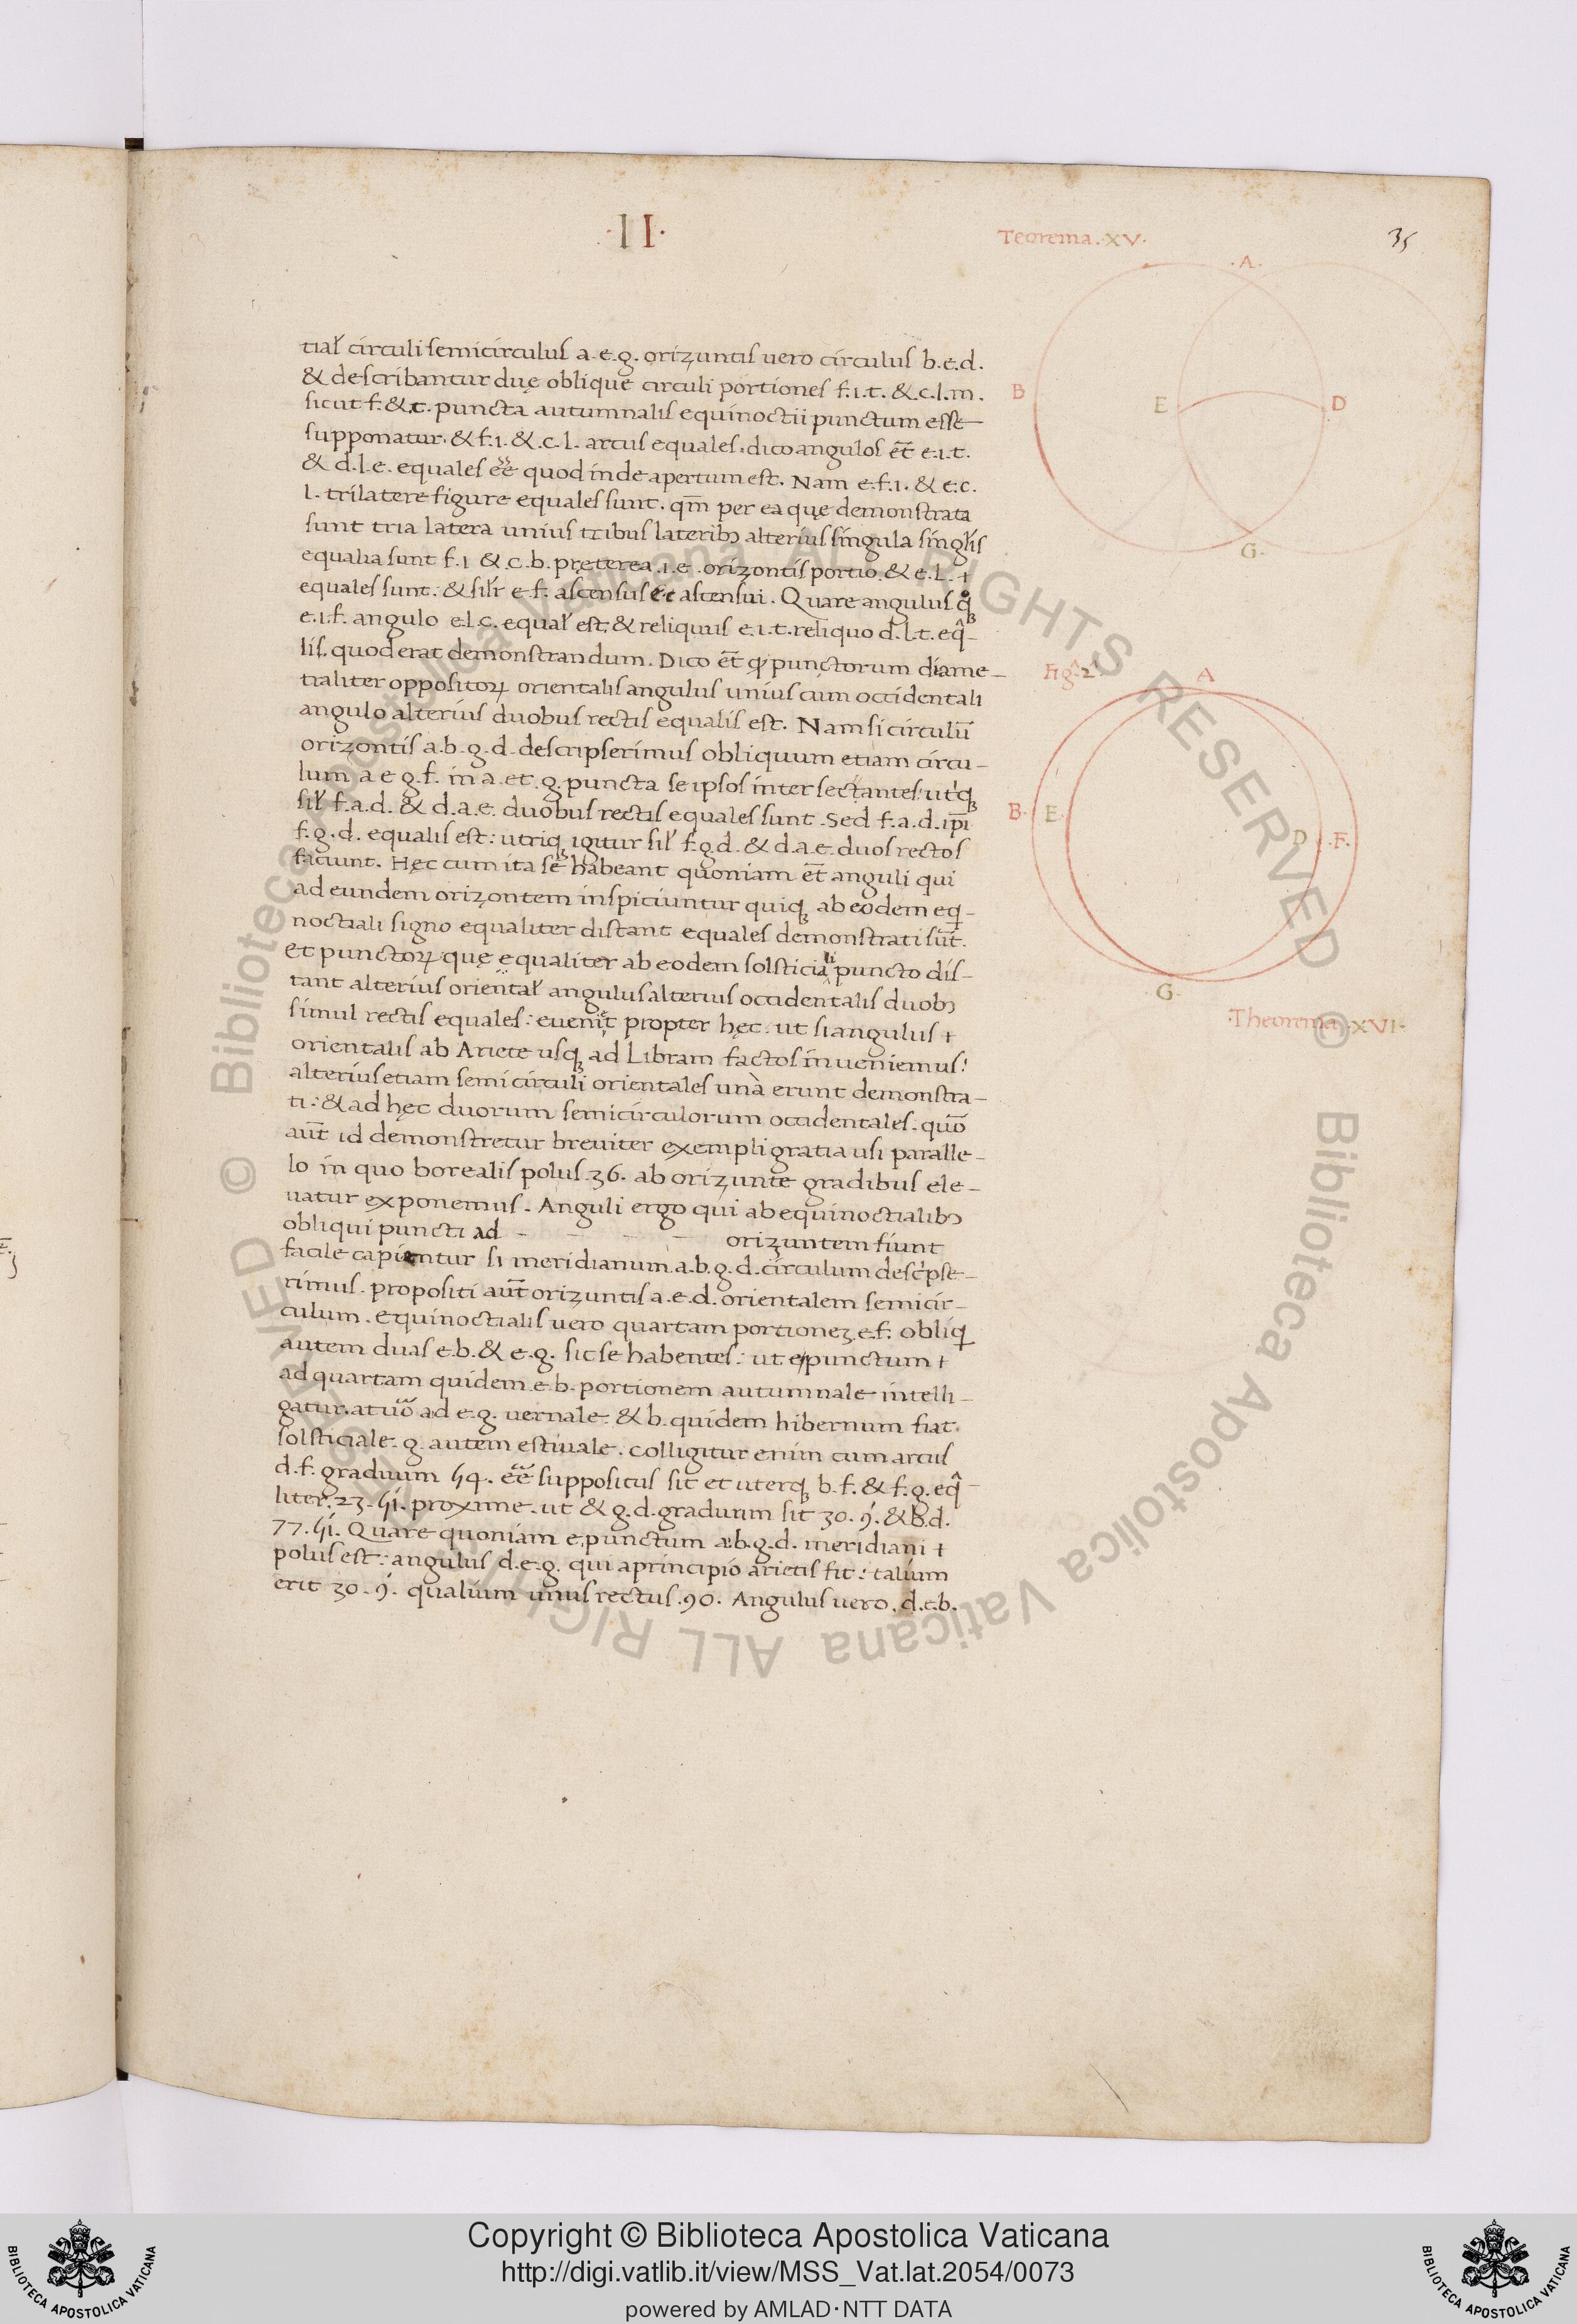 ·II·
Teorema.·XV·
35
·A·
B
E
D
G·
tiał circuli semicirculus a.e.g. orizuntis uero circulus b.e.d.
& describantur duę oblique circuli portiones f.i.t. &.c.l.m.
sicut f.&.t. puncta autumnalis equinoctii punctum esse
supponatur. & f.i. &.c.l. arcus equales. dico angulos et̄ e.i.t.
& d.l.e. equales ee᷃ quod inde apertum est. Nam e.f.i. & e.c.
l. trilatere figure equales sunt. qm̄ per ea quę demonstrata
sunt tria latera unius tribus lateribꝰ alterius singula singłis
equalia sunt f.i &.c.b. pręterea .i.e. orizontis portio.& e.l. +
equales sunt: & siłr e.f. ascensus e.c ascensui. Quare angulus q̊ꝫ
e.i.f. angulo e.l.c. equał est, & reliquus e.i.t. reliquo d.l.t. eq̂-
lis. quod erat demonstrandum. Dico et̄ ꝙ punctorum diame-
tialiter oppositoꝝ orientalis angulus unius cum occidentali
angulo alterius duobus rectis equalis est. Nam si circulū
orizontis a.b.g.d. descripserimus obliquum etiam circu-
lum a e g.f. in a.et.g. puncta se ipsos inter sectantes: ut'qꝫ
sił f.a.d. & d.a.e. duobus rectis equales sunt. Sed f.a.d. ip̄i
f.g.d. equalis est: utriqꝫ igitur sił f.g.d. & d.a.e. duos rectos
faciunt. Hęc cum ita se habeant quoniam et̄ anguli qui
ad eundem orizontem inspiciuntur quiqꝫ ab eodem eq̣-
noctiali signo equaliter distant equales demonstrati sūt.
et punctoꝝ quę equaliter ab eodem solsticiali puncto dis-
tant alterius orientał angulus alterius occidentalis duobꝰ
simul rectis equales: euenit propter hęc. ut si angulus +
orientalis ab Ariete usqꝫ ad Libram factos inueniemus:
alterius etiam semicirculi orientales unà erunt demonstra-
ti: & ad hęc duorum semicirculorum occidentales. quō
aūt id demonstretur breuiter exempli gratia usi paralle-
lo in quo borealis polus .36. ab orizunte gradibus ele-
uatur exponemus. Anguli ergo qui ab equinoctialibꝰ
obliqui puncti ad - - - - orizuntem fiunt
facile capientur si meridianum .a.b.g.d. circulum desc'pse-
rimus. propositi aūt orizuntis a.e.d. orientalem semicir-
culum. equinoctialis uero quartam portioneꝫ e.f. obliq̣
autem duas e.b. & e.g. sic se habentes: ut e punctum +
ad quartam quidem e.b. portionem autumnale intelli-
gatur. at uō ad e.g. uernale. & b. quidem hibernum fiat
solsticiale. g. autem estiuale. colligitur enim cum arcus
d.f. graduum 54. ee᷃ suppositus sit et uterqꝫ b.f. & f.g. eq̂
liter. 23. 51. proxime. ut & g.d. graduum sit 30. 9. & b.d.
77. 51. Quare quoniam e. punctum a.b.g.d. meridiani +
polus est: angulus d.e.g. qui a principio arietis fit: talium
erit 30. 9. qualium unus rectus .90. Angulus uero .d.e.b.
Fig.ᵃ 2ᵃ
A
B·
E·
D
·F·
G·
·Theorema.·XVI·
Copyright © Biblioteca Apostolica Vaticana
http://digi.vatlib.it/view/MSS_Vat.lat.2054/0073
powered by AMLAD·NTT DATA
BIBLIOTECA APOSTOLICA VATICANA
BIBLIOTECA APOSTOLICA VATICANA
© Biblioteca Apostolica Vaticana ALL RIGHTS RESERVED
© Biblioteca Apostolica Vaticana ALL RIGHTS RESERVED